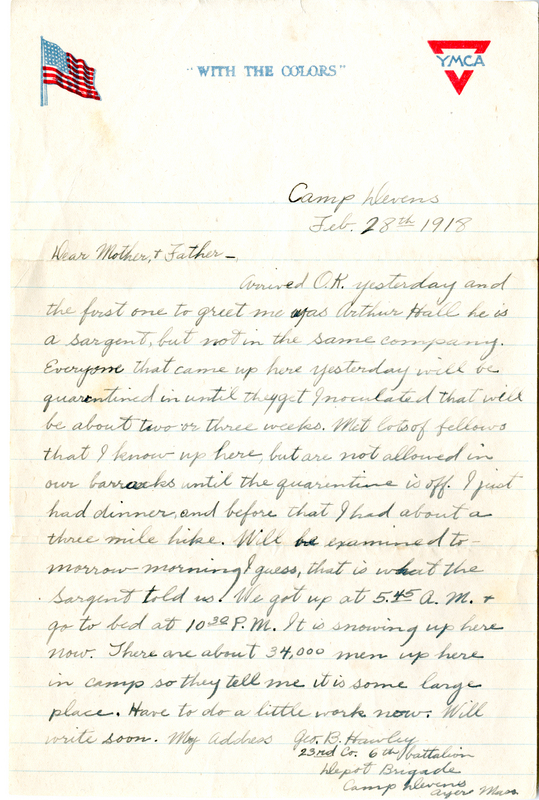 "WITH THE COLORS"
YMCA
Camp Devens
Feb. 28th 1918
Dear Mother, & Father—
Arrived O.K. yesterday and
the first one to greet me was Arthur Hall he is
a sargent, but not in the same company.
Everyone that came up here yesterday will be
quarentined in until they get Inoculated that will
be about two or three weeks. Met lots of fellows
that I know up here, but are not allowed in
our barracks until the quarentine is off. I just
had dinner, and before that I had about a
three mile hike. Will be examined to-
morrow morning I guess, that is what the
Sargent told us. We got up at 5.45 A.M. +
go to bed at 10 30 P.M. It is snowing up here
now. There are about 34,000 men up here
in camp so they tell me it is some large
place. Have to do a little work now. Will
write soon. My Address Geo. B. Hawley
23rd Co. 6th battalion
Depot Brigade
Camp Devens
Ayer Mass.